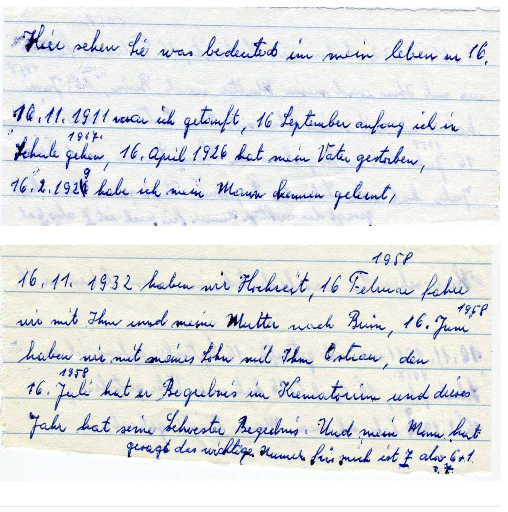 Hier sehen Sie was bedeutet im mein leben nr 16.
16.11.1911 war ich getauft, 16 September anfang ich in
1917.
Schule gehen, 16. April 1926 hat mein Vater gestorben,
16.2.1929 habe ich mein Mann kennen gelernt,
1958
16.11.1932 haben wir Hochzeit, 16 Februar fahre
wir mit Ihm und meine Mutter nach 16. Juni 1958
haben wir mit meines Sohn mit Ihm den
1958
16. Juli hat er Begrebnis im Krematorium und dieses
Jahr hat seine Schwester Begrebnis. Und mein Mann hat
gesagt das wichtige Numer für mich ist 7 also 6+1.